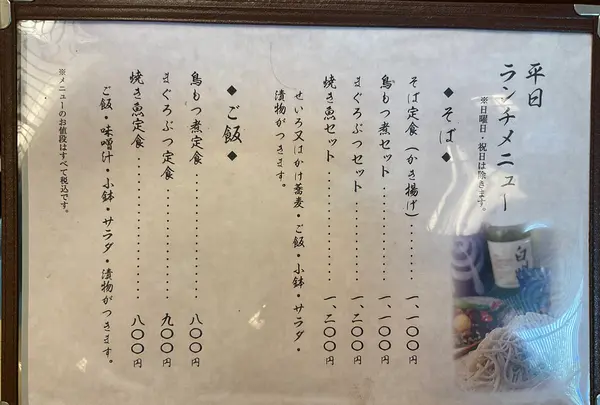 平日
ランチメニュー
※日曜日・祝日は除きます。
◆そば◆
そば定食(かき揚げ)………一、一〇〇円
鳥もつ煮セット………一、一〇〇円
まぐろぶつセット………一、二〇〇円
焼き魚セット………一、二〇〇円
せいろ又はかけ蕎麦・ご飯・小鉢・サラダ・
漬物がつきます。
◆ご飯◆
鳥もつ煮定食………八〇〇円
まぐろぶつ定食………九〇〇円
焼き魚定食………八〇〇円
ご飯・味噌汁・小鉢・サラダ・漬物がつきます。
※メニューのお値段はすべて税込です。